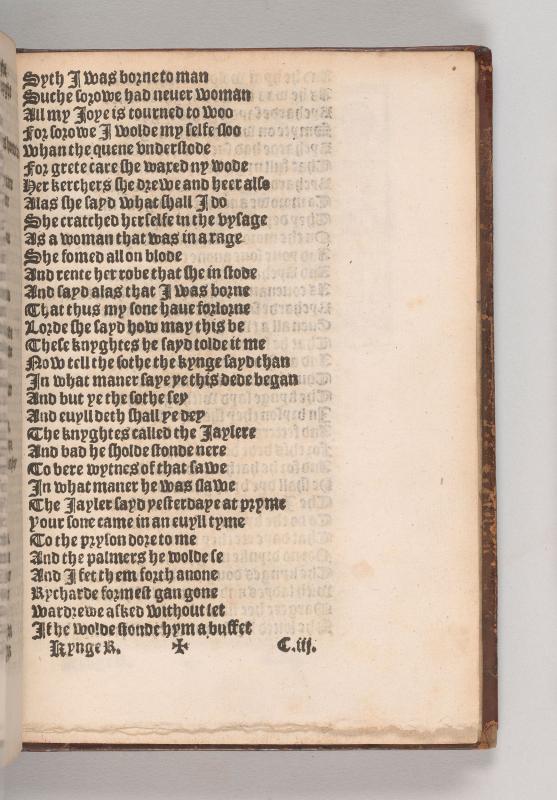 Syth I was borne to man
Suche sorowe had neuer woman
All my Ioye is tourned to woo
For sorowe I wolde my selfe sloo
whan the quene vnderstode
For grete care she waxed ny wode
Her kerchers she drewe and heer also
Alas she sayd what shall I do
She cratched her selfe in the vysage
As a woman that was in a rage
She fomed all on blode
And rente her robe that she in stode
And sayd alas that I was borne
That thus my sone haue forlorne
Lorde she sayd how may this be
These knyghtes he sayd tolde it me
Now tell the sothe the kynge sayd than
In what maner saye ye this dede began
And but ye the sothe sey
And euyll deth shall ye dey
The knyghtes called the Iaylere
And bad he sholde stonde nere
To bere wytnes of that sawe
In what maner he was slawe
The Iayler sayd yesterdaye at pryme
your sone came in an euyll tyme
To the pryson dore to me
And the palmers he wolde se
And I fet them forth anone
Rycharde formest gan gone
wardrewe asked without let
If he wolde stonde hym a buffet
Kynge R. ✠ C.iij.